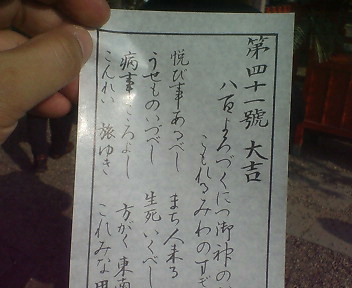 第四十一號 大吉
八百よろづくにつ御神の
こもれるみわのすぎ
悦び事あるべし まち人来る
うせものいづべし 生死いくべし
病事こゝろよし 方がく東南
こんれい 旅ゆき これみな